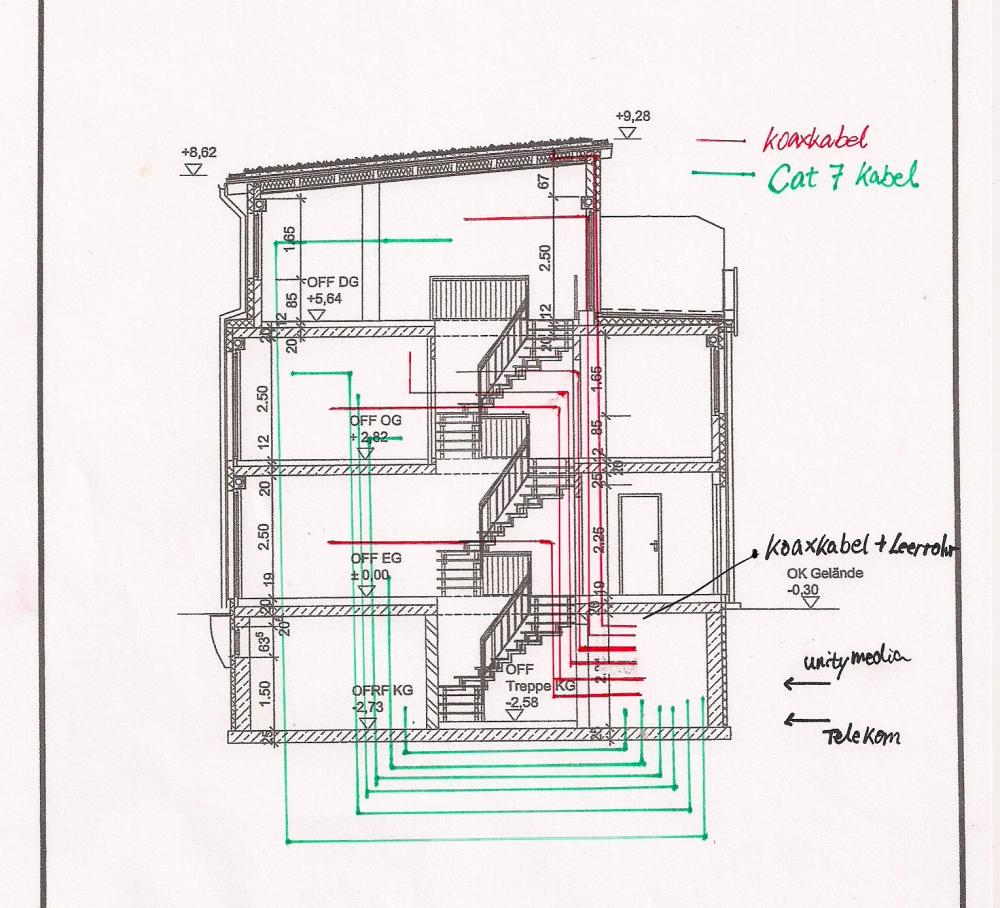 +9,28
+8,62
koaxkabel
Cat 7 Kabel
67
1.65
2.50
OFF DG
+5,64
85
12
12
20
20
20
2.50
1.65
OFF OG
+ 2,82
85
12
12
25
20
20
2.50
2.25
OFF EG
± 0,00
koaxkabel + Leerrohr
OK Gelände
-0,30
19
19
20
20
20⁵
63⁵
unitymedia
OFF
Treppe KG
-2,58
OFRF KG
-2,73
1.50
Telekom
25
25